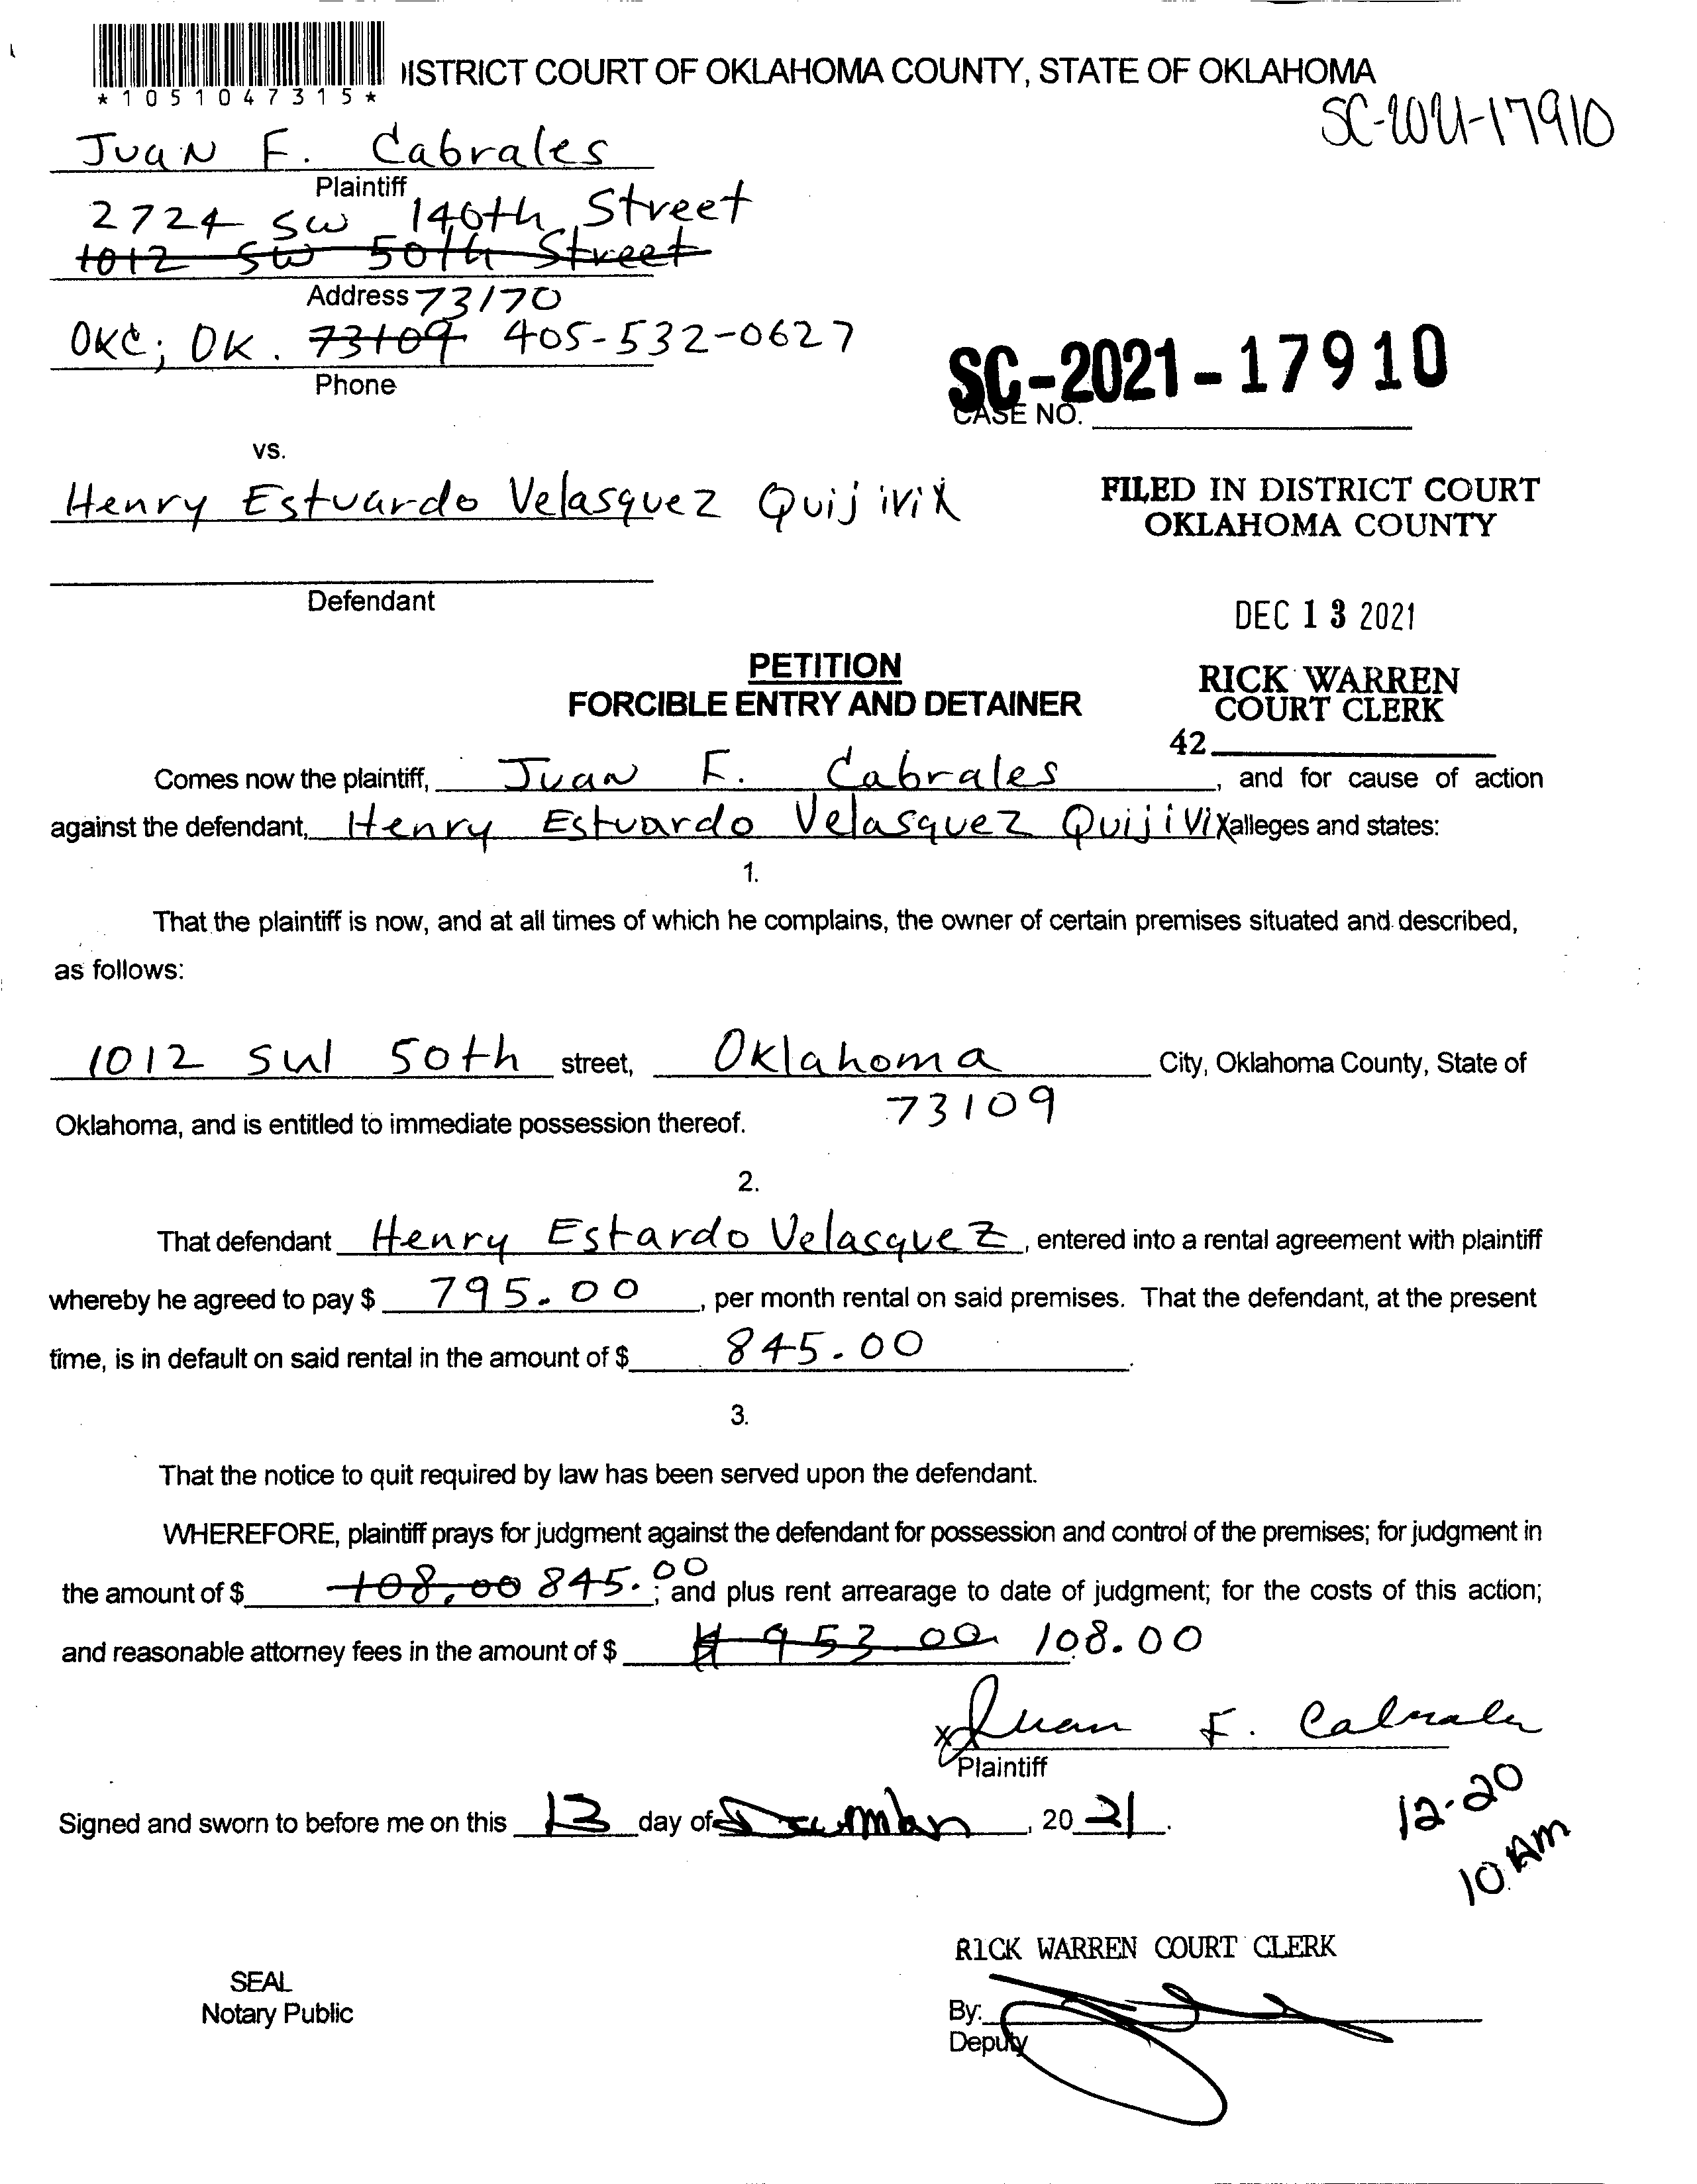 ISTRICT COURT OF OKLAHOMA COUNTY, STATE OF OKLAHOMA
*1051047315*
SC-2021-17910
Juan F. Cabrales
Plaintiff
2724 SW 140th Street
1012 SW 50th Street
Address 73170
OKC; OK. 73109 405-532-0627
Phone
SC-2021-17910
CASE NO.
vs.
Henry Estuardo Velasquez Quijivix
Defendant
FILED IN DISTRICT COURT
OKLAHOMA COUNTY
DEC 13 2021
RICK WARREN
COURT CLERK
42
PETITION
FORCIBLE ENTRY AND DETAINER
Comes now the plaintiff, Juan F. Cabrales, and for cause of action
against the defendant, Henry Estuardo Velasquez Quijivix alleges and states:
1.
That the plaintiff is now, and at all times of which he complains, the owner of certain premises situated and described,
as follows:
1012 SW 50th street, Oklahoma City, Oklahoma County, State of
73109
Oklahoma, and is entitled to immediate possession thereof.
2.
That defendant Henry Estardo Velasquez, entered into a rental agreement with plaintiff
whereby he agreed to pay $ 795.00, per month rental on said premises. That the defendant, at the present
time, is in default on said rental in the amount of $ 845.00.
3.
That the notice to quit required by law has been served upon the defendant.
WHEREFORE, plaintiff prays for judgment against the defendant for possession and control of the premises; for judgment in
the amount of $ 108.00 845.00; and plus rent arrearage to date of judgment; for the costs of this action;
and reasonable attorney fees in the amount of $ 953.00 108.00
x Juan F. Cabrales
Plaintiff
Signed and sworn to before me on this 13 day of December, 20 21.
12-20
10 AM
RICK WARREN COURT CLERK
SEAL
Notary Public
By:
Deputy